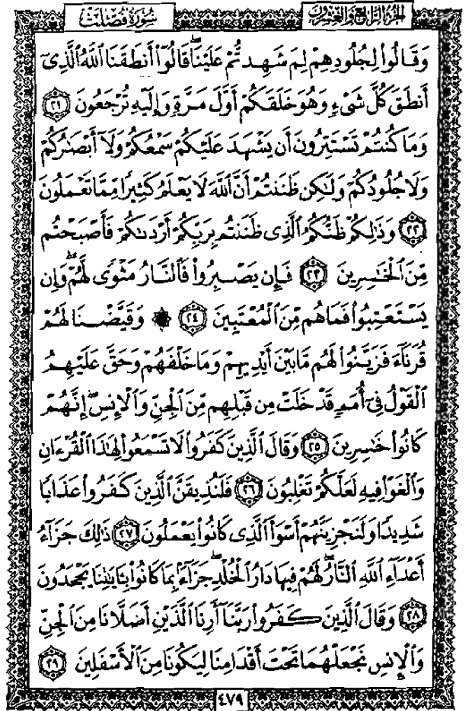 الجزء الرابع والعشرون سورة فصلت
وَقَالُوا۟ لِجُلُودِهِمْ لِمَ شَهِدتُّمْ عَلَيْنَا ۖ قَالُوٓا۟ أَنطَقَنَا ٱللَّهُ ٱلَّذِىٓ
أَنطَقَ كُلَّ شَىْءٍ وَهُوَ خَلَقَكُمْ أَوَّلَ مَرَّةٍ وَإِلَيْهِ تُرْجَعُونَ ٢١
وَمَا كُنتُمْ تَسْتَتِرُونَ أَن يَشْهَدَ عَلَيْكُمْ سَمْعُكُمْ وَلَآ أَبْصَـٰرُكُمْ
وَلَا جُلُودُكُمْ وَلَـٰكِن ظَنَنتُمْ أَنَّ ٱللَّهَ لَا يَعْلَمُ كَثِيرًا مِّمَّا تَعْمَلُونَ
٢٢ وَذَٰلِكُمْ ظَنُّكُمُ ٱلَّذِى ظَنَنتُم بِرَبِّكُمْ أَرْدَىٰكُمْ فَأَصْبَحْتُم
مِّنَ ٱلْخَـٰسِرِينَ ٢٣ فَإِن يَصْبِرُوا۟ فَٱلنَّارُ مَثْوًى لَّهُمْ ۖ وَإِن
يَسْتَعْتِبُوا۟ فَمَا هُم مِّنَ ٱلْمُعْتَبِينَ ٢٤ ۞ وَقَيَّضْنَا لَهُمْ
قُرَنَآءَ فَزَيَّنُوا۟ لَهُم مَّا بَيْنَ أَيْدِيهِمْ وَمَا خَلْفَهُمْ وَحَقَّ عَلَيْهِمُ
ٱلْقَوْلُ فِىٓ أُمَمٍ قَدْ خَلَتْ مِن قَبْلِهِم مِّنَ ٱلْجِنِّ وَٱلْإِنسِ ۖ إِنَّهُمْ
كَانُوا۟ خَـٰسِرِينَ ٢٥ وَقَالَ ٱلَّذِينَ كَفَرُوا۟ لَا تَسْمَعُوا۟ لِهَـٰذَا ٱلْقُرْءَانِ
وَٱلْغَوْا۟ فِيهِ لَعَلَّكُمْ تَغْلِبُونَ ٢٦ فَلَنُذِيقَنَّ ٱلَّذِينَ كَفَرُوا۟ عَذَابًا
شَدِيدًا وَلَنَجْزِيَنَّهُمْ أَسْوَأَ ٱلَّذِى كَانُوا۟ يَعْمَلُونَ ٢٧ ذَٰلِكَ جَزَآءُ
أَعْدَآءِ ٱللَّهِ ٱلنَّارُ ۖ لَهُمْ فِيهَا دَارُ ٱلْخُلْدِ ۖ جَزَآءًۢ بِمَا كَانُوا۟ بِـَٔايَـٰتِنَا يَجْحَدُونَ
٢٨ وَقَالَ ٱلَّذِينَ كَفَرُوا۟ رَبَّنَآ أَرِنَا ٱلَّذَيْنِ أَضَلَّانَا مِنَ ٱلْجِنِّ
وَٱلْإِنسِ نَجْعَلْهُمَا تَحْتَ أَقْدَامِنَا لِيَكُونَا مِنَ ٱلْأَسْفَلِينَ ٢٩
٤٧٩